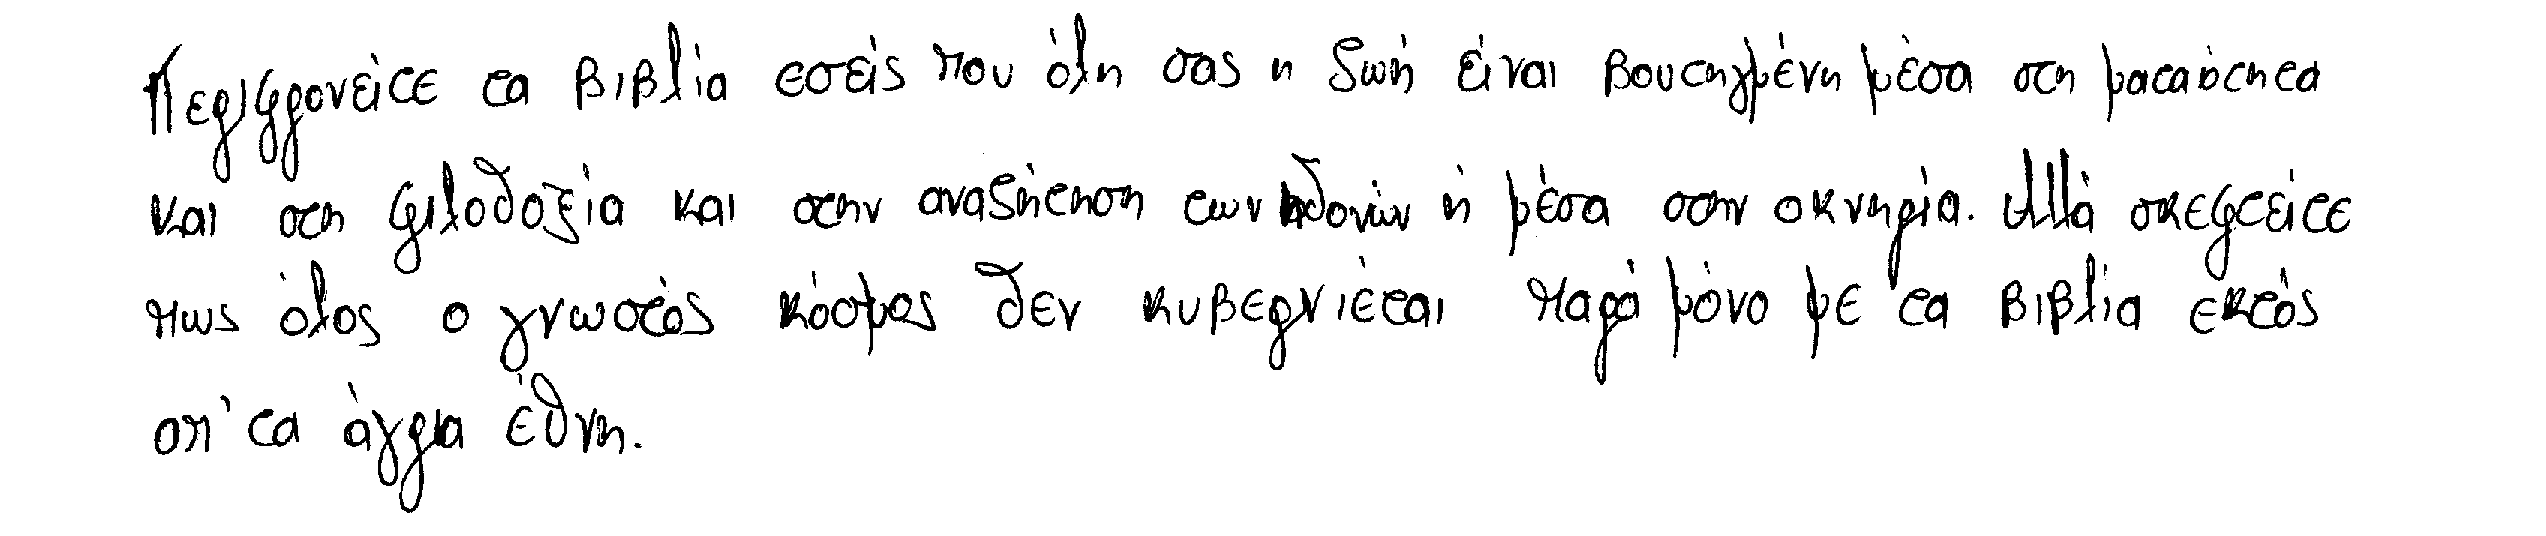 Περιφρονείτε τα βιβλία εσείς που όλη σας η ζωή είναι βουτηγμένη μέσα στη ματαιότητα
και στη φιλοδοξία και στην αναζήτηση των ηδονών ή μέσα στην οκνηρία. Αλλά σκεφτείτε
πως όλος ο γνωστός κόσμος δεν κυβερνιέται παρά μόνο με τα βιβλία εκτός
απ' τα άγρια έθνη.